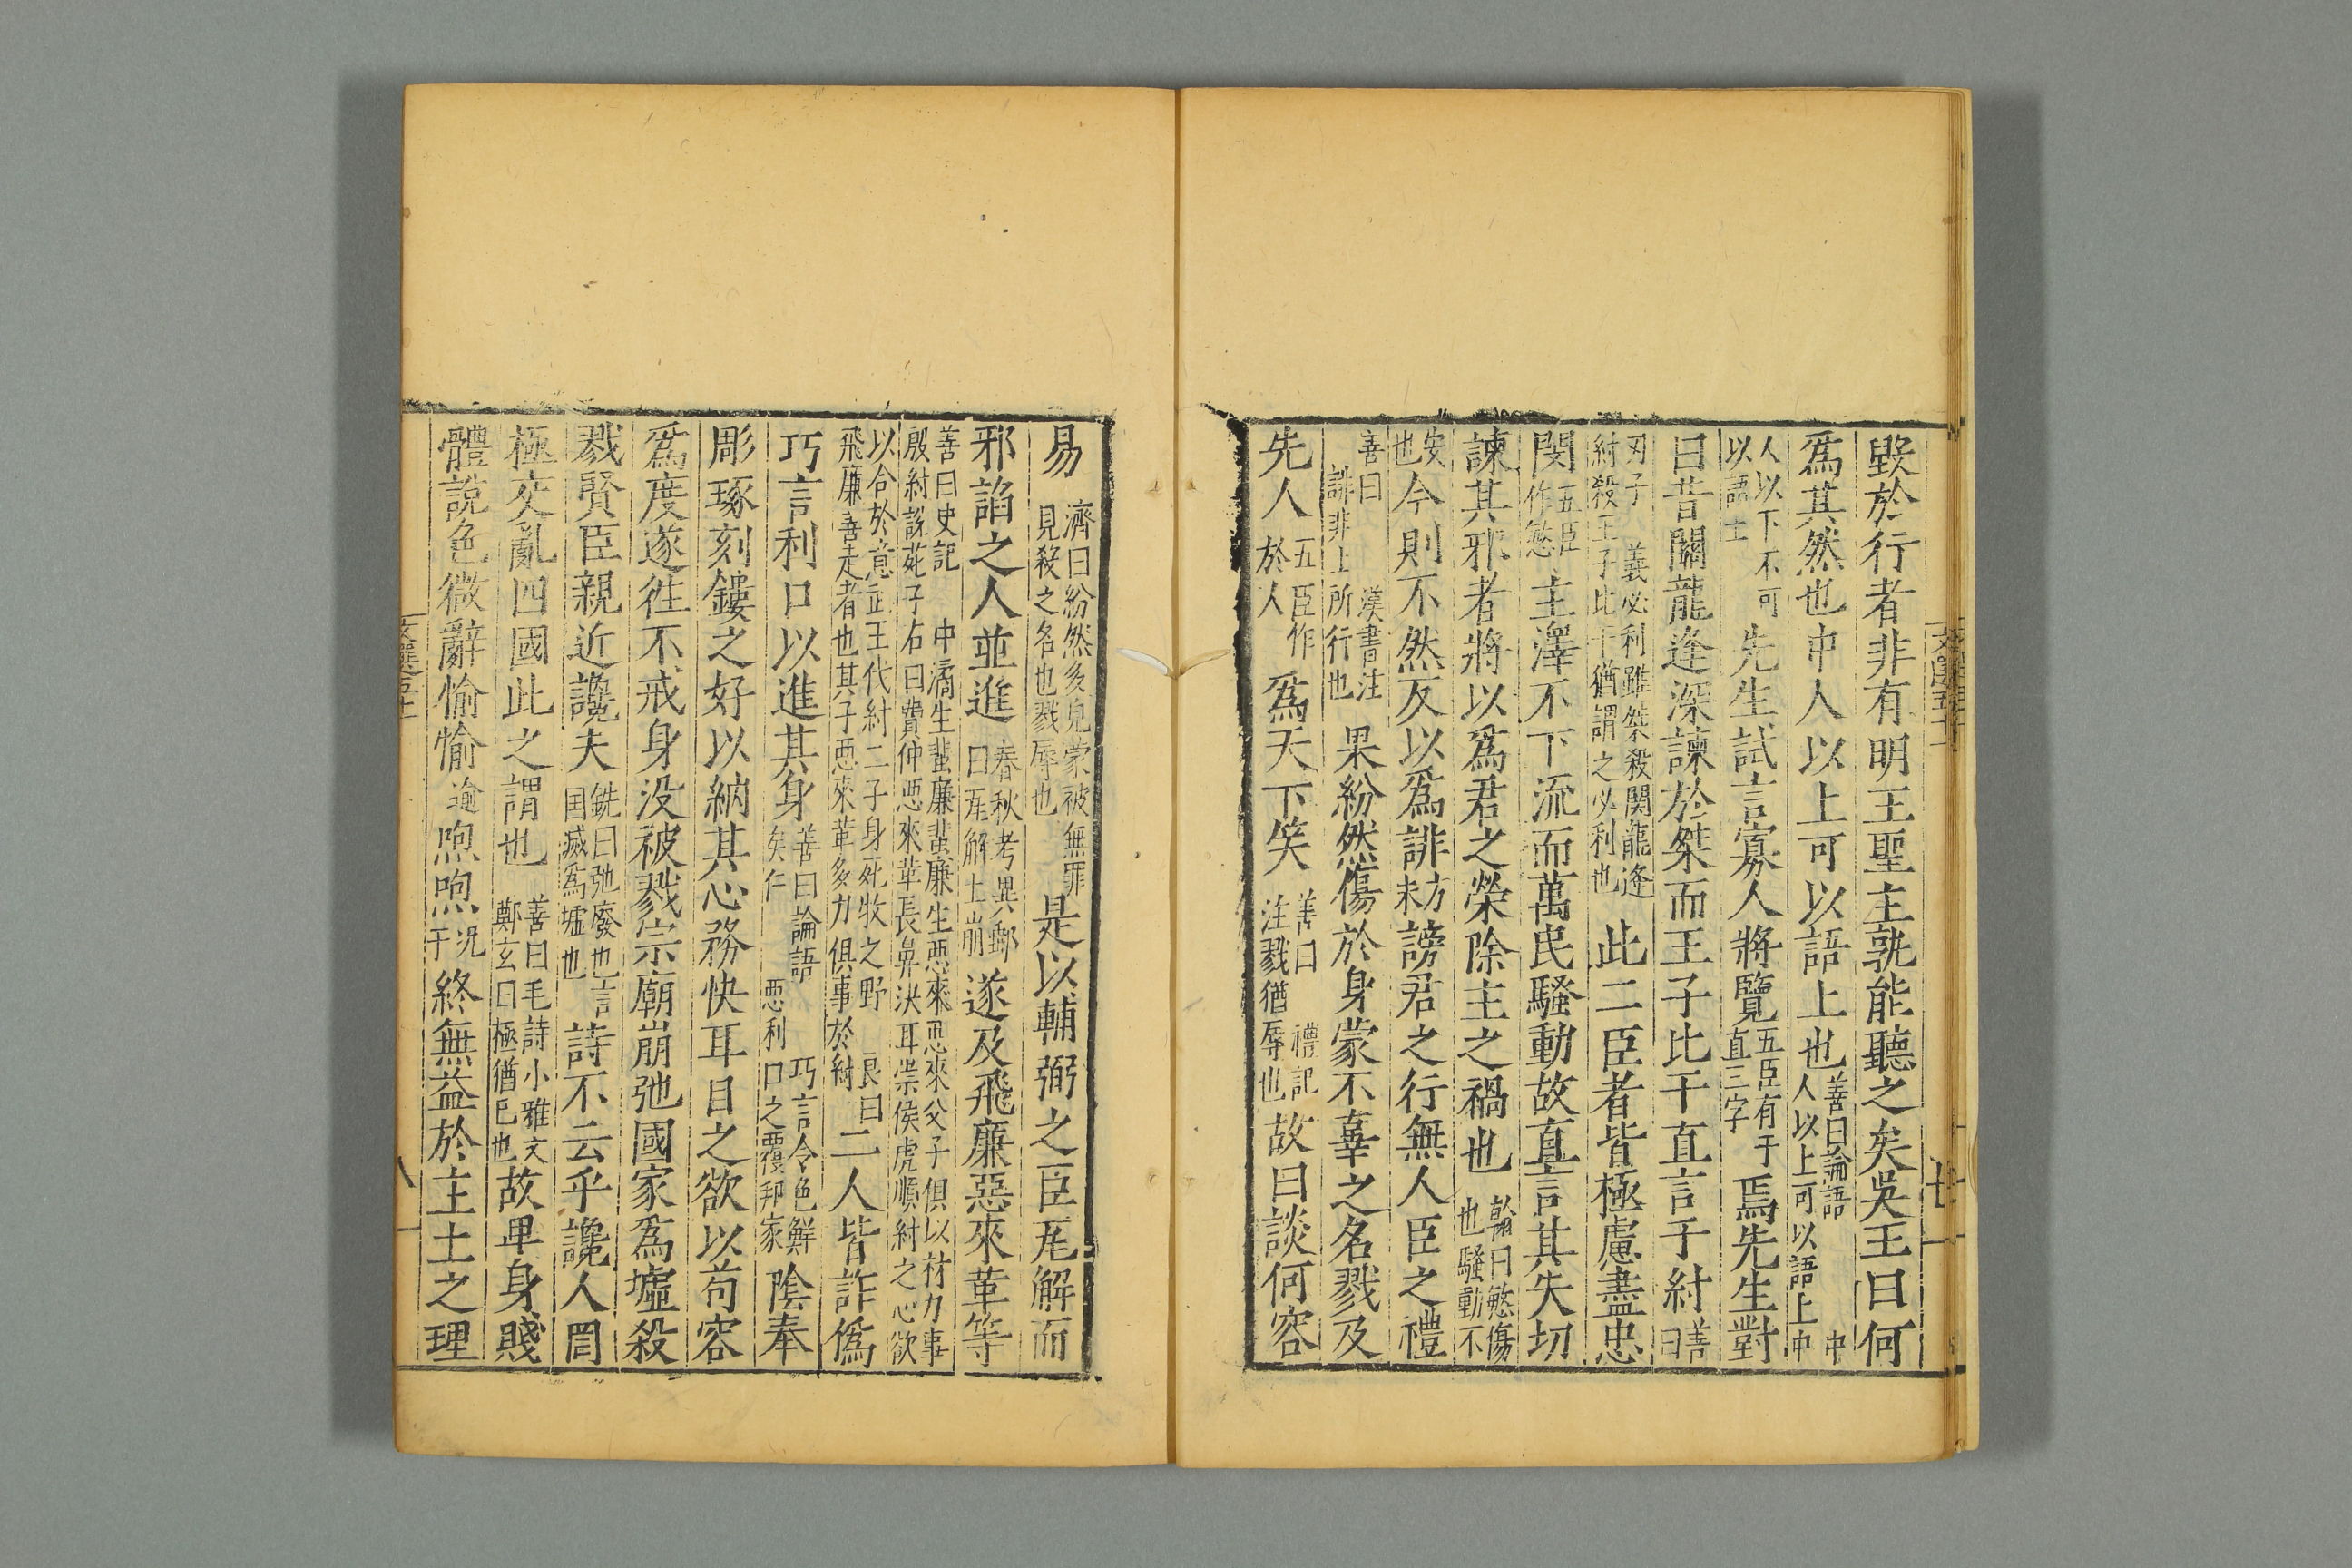 毀於行者非有明王聖主孰能聽之矣吳王曰何
爲其然也中人以上可以語上也善曰論語 中人以上可以語上中
人以下不可以語上 先生試言寡人將覽五臣有于直三字焉先生對
曰昔關龍逄深諫於桀而王子比干直言于紂善曰
義必利雖桀殺関龍逄紂殺王子比干猶謂之必利也此二臣者皆極慮盡忠
閔五臣作慜主澤不下流而萬民騷動故直言其失切
諫其邪者將以爲君之榮除主之禍也翰曰慜傷也騷動不
安也今則不然反以爲誹方未謗君之行無人臣之禮
善曰 漢書注誹非上所行也果紛然傷於身蒙不辜之名戮及
先人五臣作於人爲天下笑善曰 禮記注戮猶辱也故曰談何容
易濟曰紛然多皃蒙被無罪見殺之名也戮辱也是以輔弼之臣瓦解而
邪諂之人並進春秋考異郵曰瓦解土崩遂及飛廉惡來革等
善曰史記 中潏生蜚廉蜚廉生惡來惡來父子俱以材力事殷紂説苑子石曰費仲惡來革長鼻決耳崇侯虎順紂之心欲
以合於意武王代紂二子身死牧之野 良曰飛廉善走者也其子惡來革多力俱事於紂二人皆詐僞
巧言利口以進其身善曰論語 巧言令色鮮矣仁 惡利口之覆邦家陰奉
彫琢刻鏤之好以納其心務快耳目之欲以苟容
爲度遂往不戒身没被戮宗廟崩弛國家爲墟殺
戮賢臣親近讒夫銑曰弛廢也言国滅爲墟也詩不云乎讒人罔
極交亂四國此之謂也善曰毛詩小雅文鄭玄曰極猶已也故卑身賤
體説色微辭愉愉逾呴呴况于終無益於主上之理